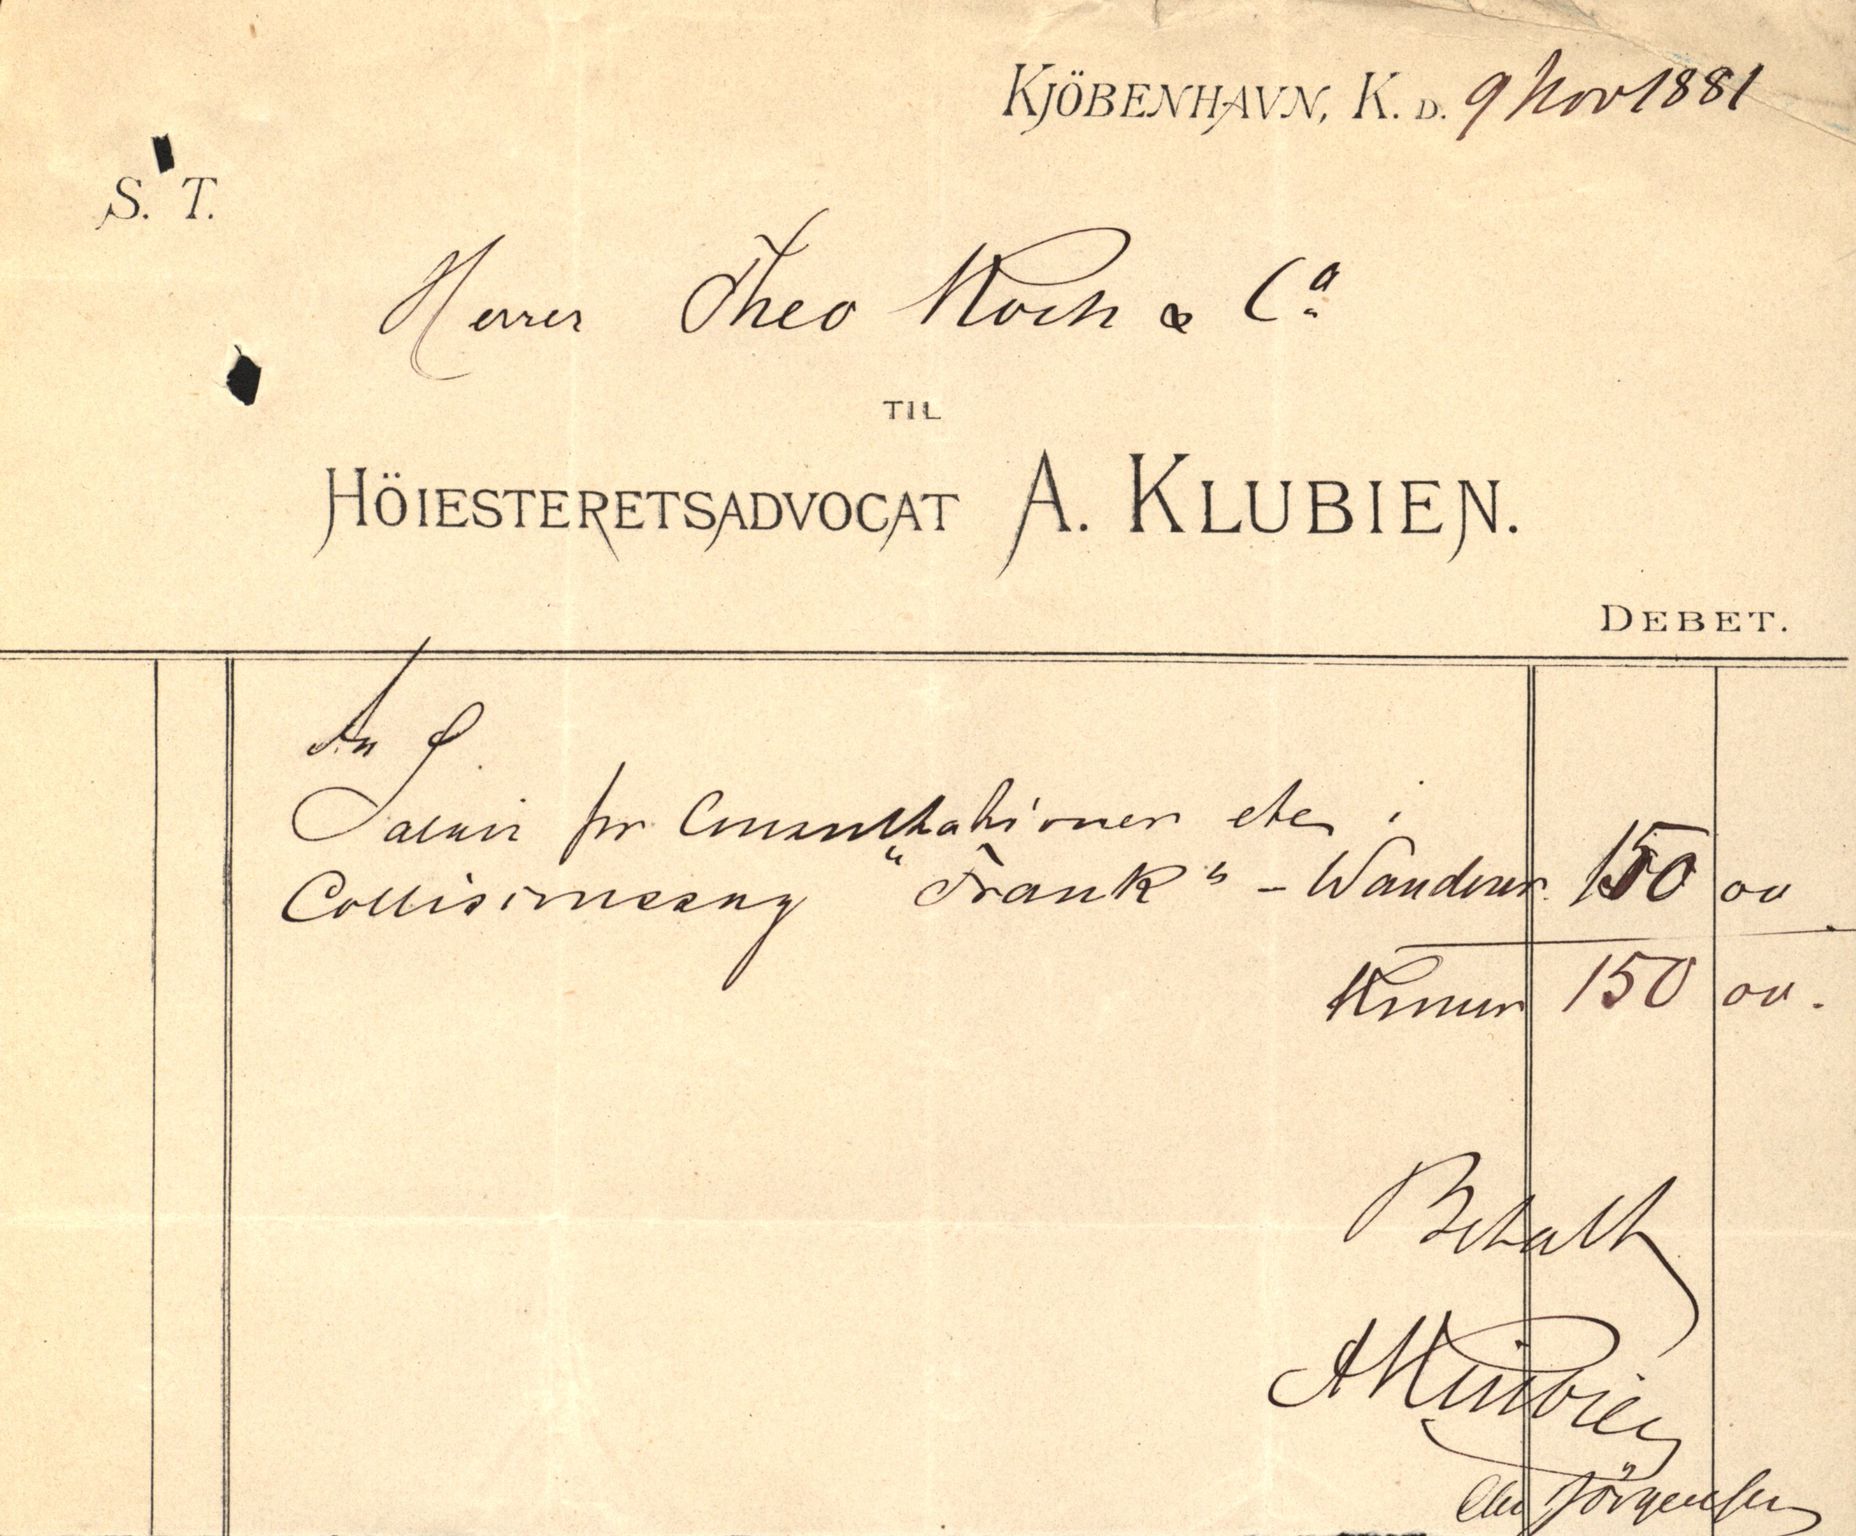 KJÖBENHAVN, K. D. 9 Nov 1881
S. T.
Herrer Theo Koch & Co.
TIL
HÖIESTERETSADVOCAT A. KLUBIEN.
DEBET.
An
Salair for Consultationer etc i
Collisionssag "Frank" – Wanderer. 150 00
Kroner 150 00.
Betalt
AKlubien
Jörgensen